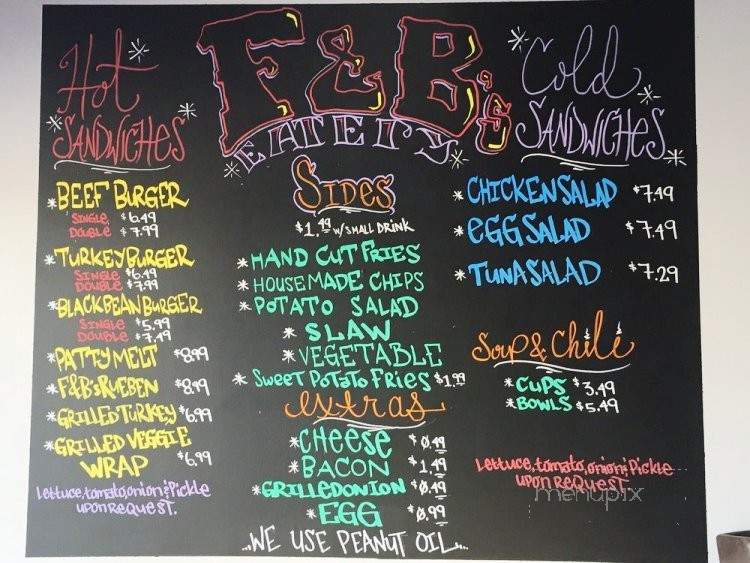 F&B's
EATERY
Hot
SANDWICHES
*BEEF BURGER
SINGLE $6.49
DOUBLE $7.99
*TURKEY BURGER
SINGLE $6.49
DOUBLE $7.99
*BLACK BEAN BURGER
SINGLE $5.99
DOUBLE $7.49
*PATTY MELT $8.99
*F&B's RUEBEN $8.49
*GRILLED TURKEY $6.99
*GRILLED VEGGIE
WRAP $6.99
Lettuce, tomato, onion & Pickle
upon ReQuest.
SIDES
$1.49 W/SMALL DRINK
*HAND CUT FRIES
*HOUSEMADE CHIPS
*POTATO SALAD
*SLAW
*VEGETABLE
*SWEET POTATO FRIES $1.99
extras
*CHEESE $0.49
*BACON $1.49
*GRILLED ONION $0.49
*EGG $0.99
...WE USE PEANUT OIL...
Cold
SANDWICHES
*CHICKEN SALAD $7.49
*EGG SALAD $7.49
*TUNA SALAD $7.29
Soup & Chili
*CUPS $3.49
*BOWLS $5.49
Lettuce, tomato, onion & Pickle
upon ReQuest.
menupix